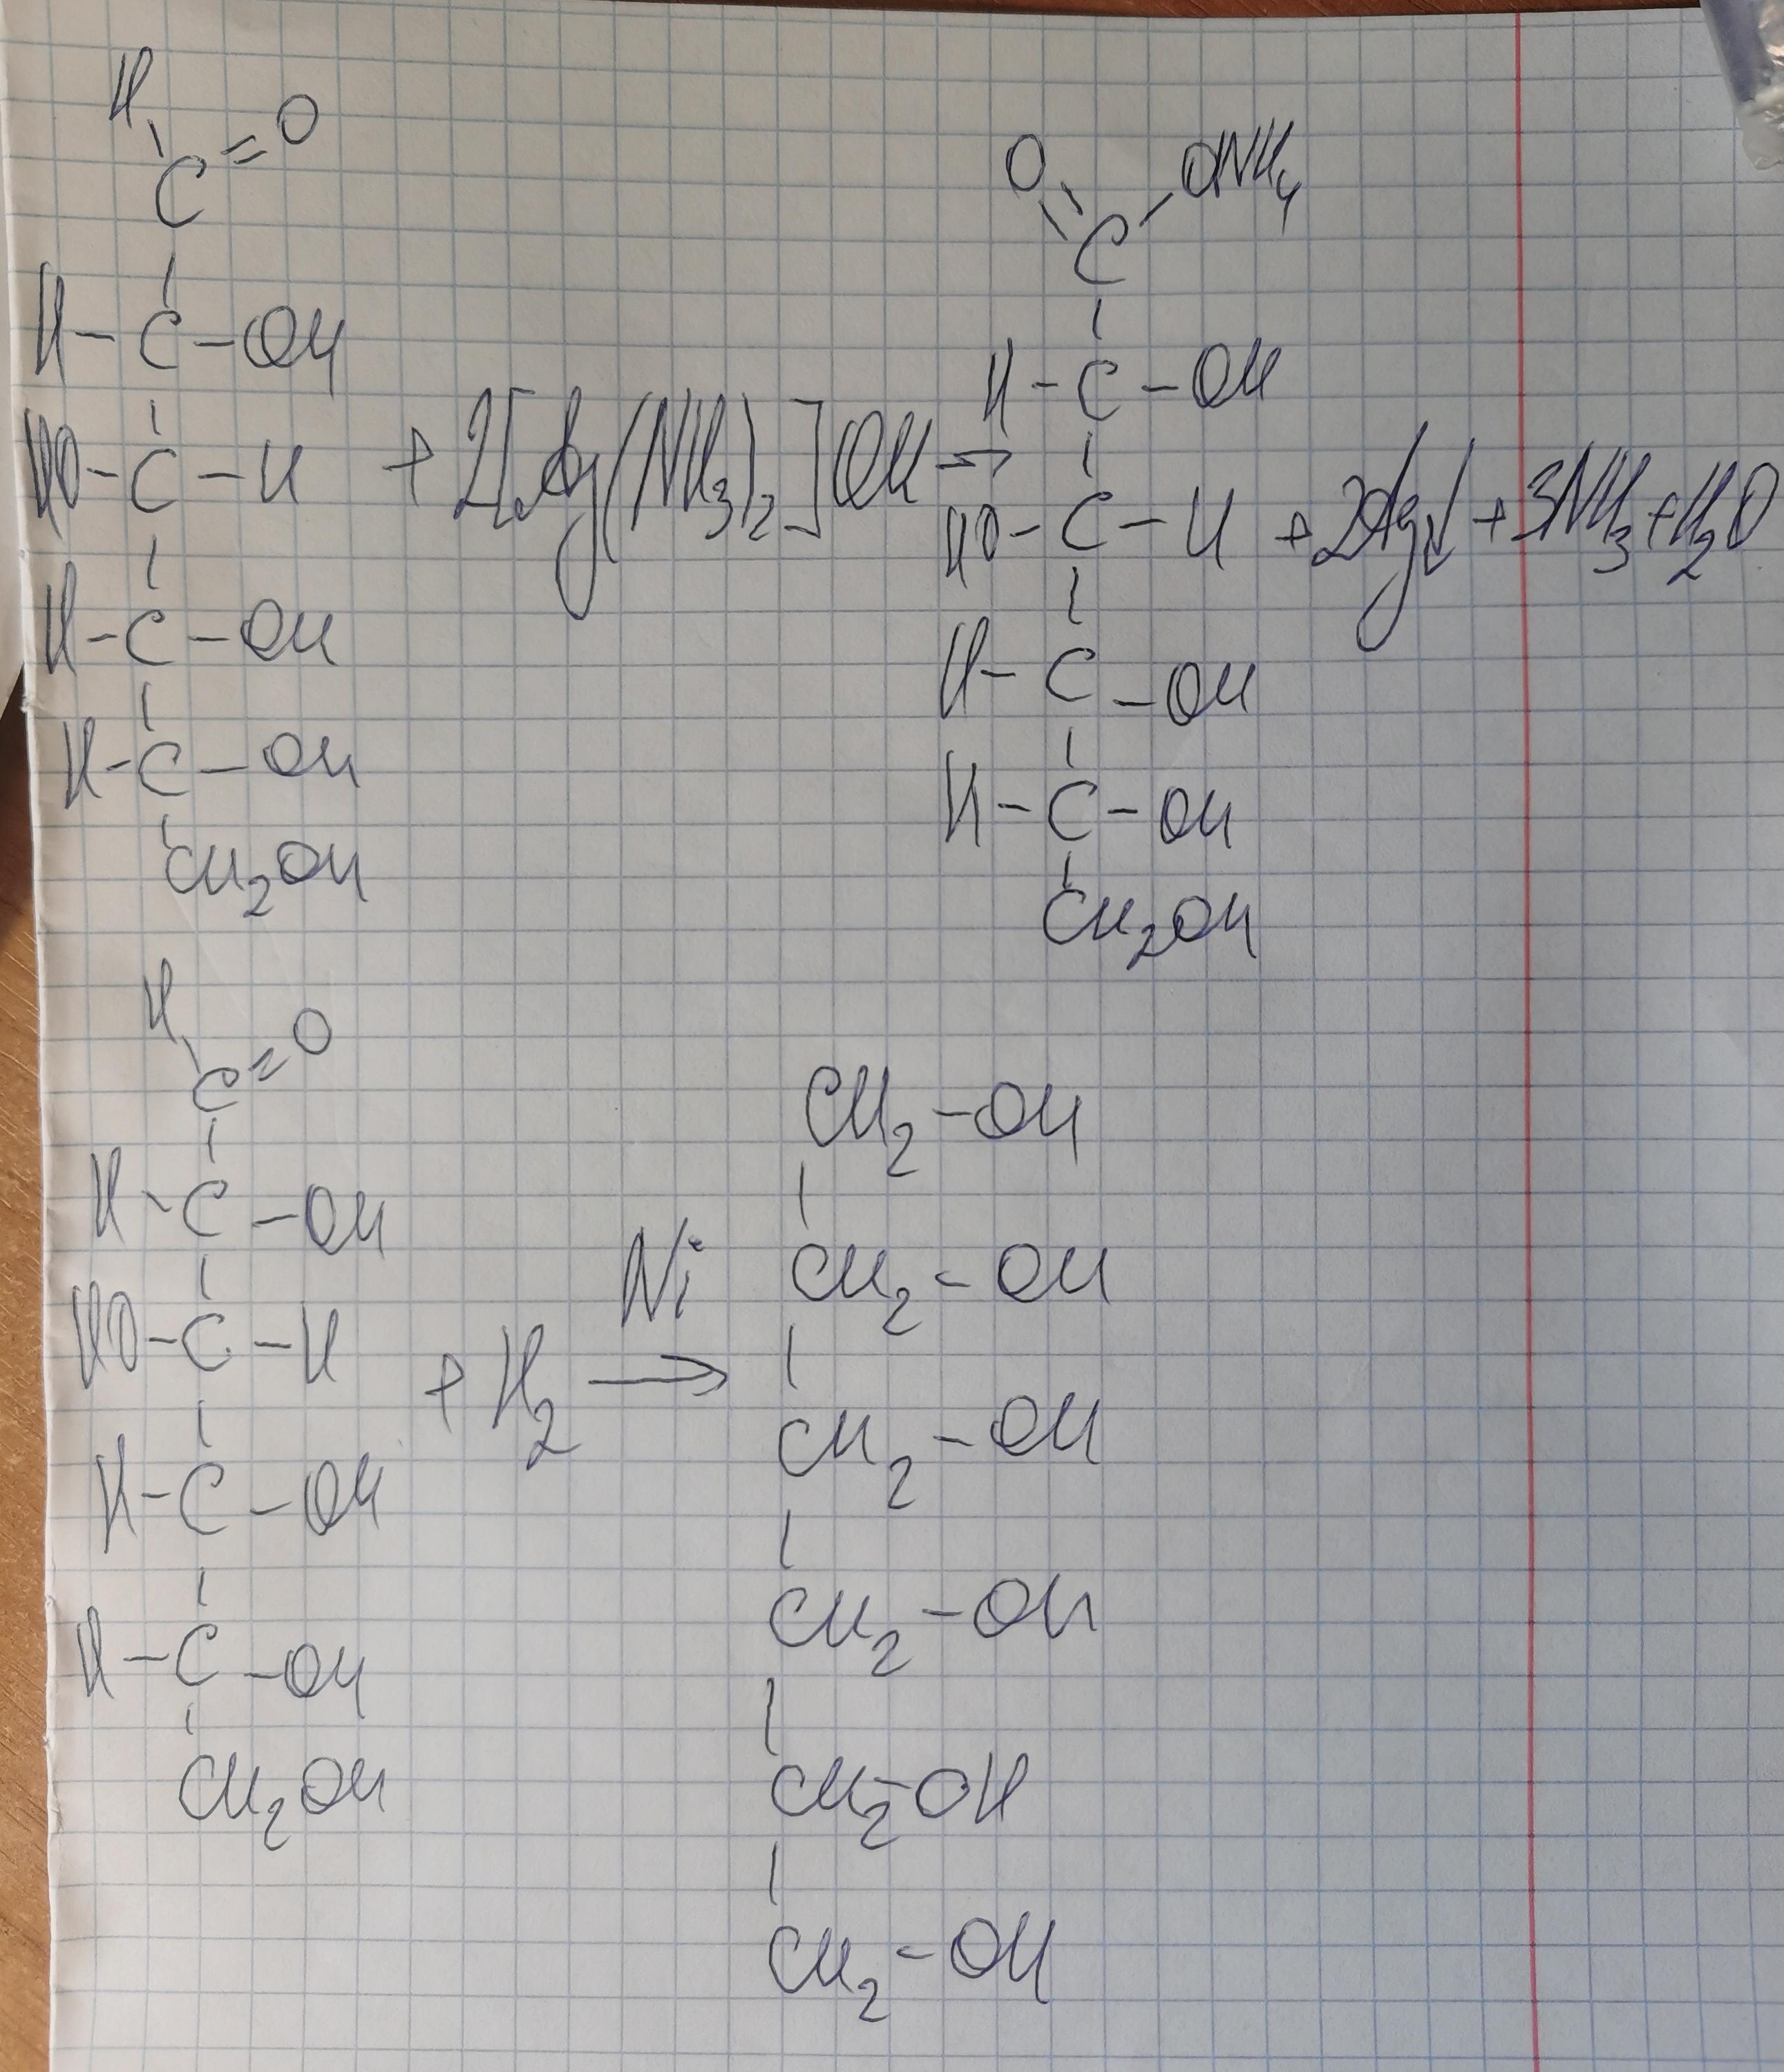 H
C = O
H - C - OH
HO - C - H
H - C - OH
H - C - OH
CH2OH
+ 2[Ag(NH3)2]OH →
O = C - ONH4
H - C - OH
HO - C - H
H - C - OH
H - C - OH
CH2OH
+ 2Ag↓ + 3NH3 + H2O
H
C = O
H - C - OH
HO - C - H
H - C - OH
H - C - OH
CH2OH
+ H2
Ni
→
CH2 - OH
CH2 - OH
CH2 - OH
CH2 - OH
CH2 - OH
CH2 - OH